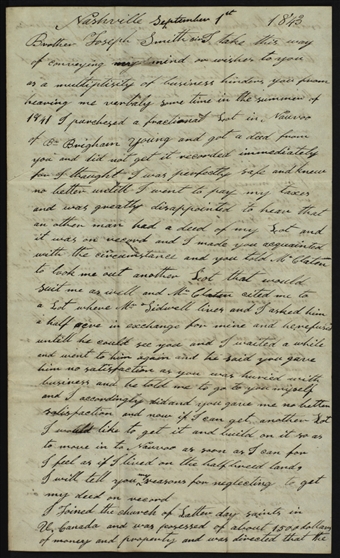 Nashville September 1st 1843
Brother Joseph Smith sir I take this way
of conveying my mind or wishes to you
as a multiplisity of business hinders you from
heareing me verbaly some time in the summer of
1841 I purchesed a fractional Lot in Nauvoo
of Br Brigham Young and got a deed from
you and did not get it recorded immediately
for I thought I was perfectly safe and knew
no better untill I went to pay my taxes
and was greatly disappointed to hear that
an other man had a deed of my Lot and
it was on record and I made you acquainted
with the circumstance and you told Mr Claten
to look me out another Lot that would
suit me as well and Mr Claten acted me to
a Lot where Mr Sidwell lives and I asked him
a half acre in exchange for mine and he refused
untill he could see you and I waited a while
and went to him again and he said you gave
him no satisfaction as you was huried with
business and he told me to go to you myself
and I accordingly did and you gave me no better
satisfaction and now if I can get another Lot
I would like to get it and build on it so as
to move in to Nauvoo as soon as I can for
I feel as if I lived on the half breed lands
I will tell you reasons for neglecting to get
my deed on record
I Joined the church of Latter day saints in
U. Canada and was posessed of about 1500 dollars
of money and property and was directed that the